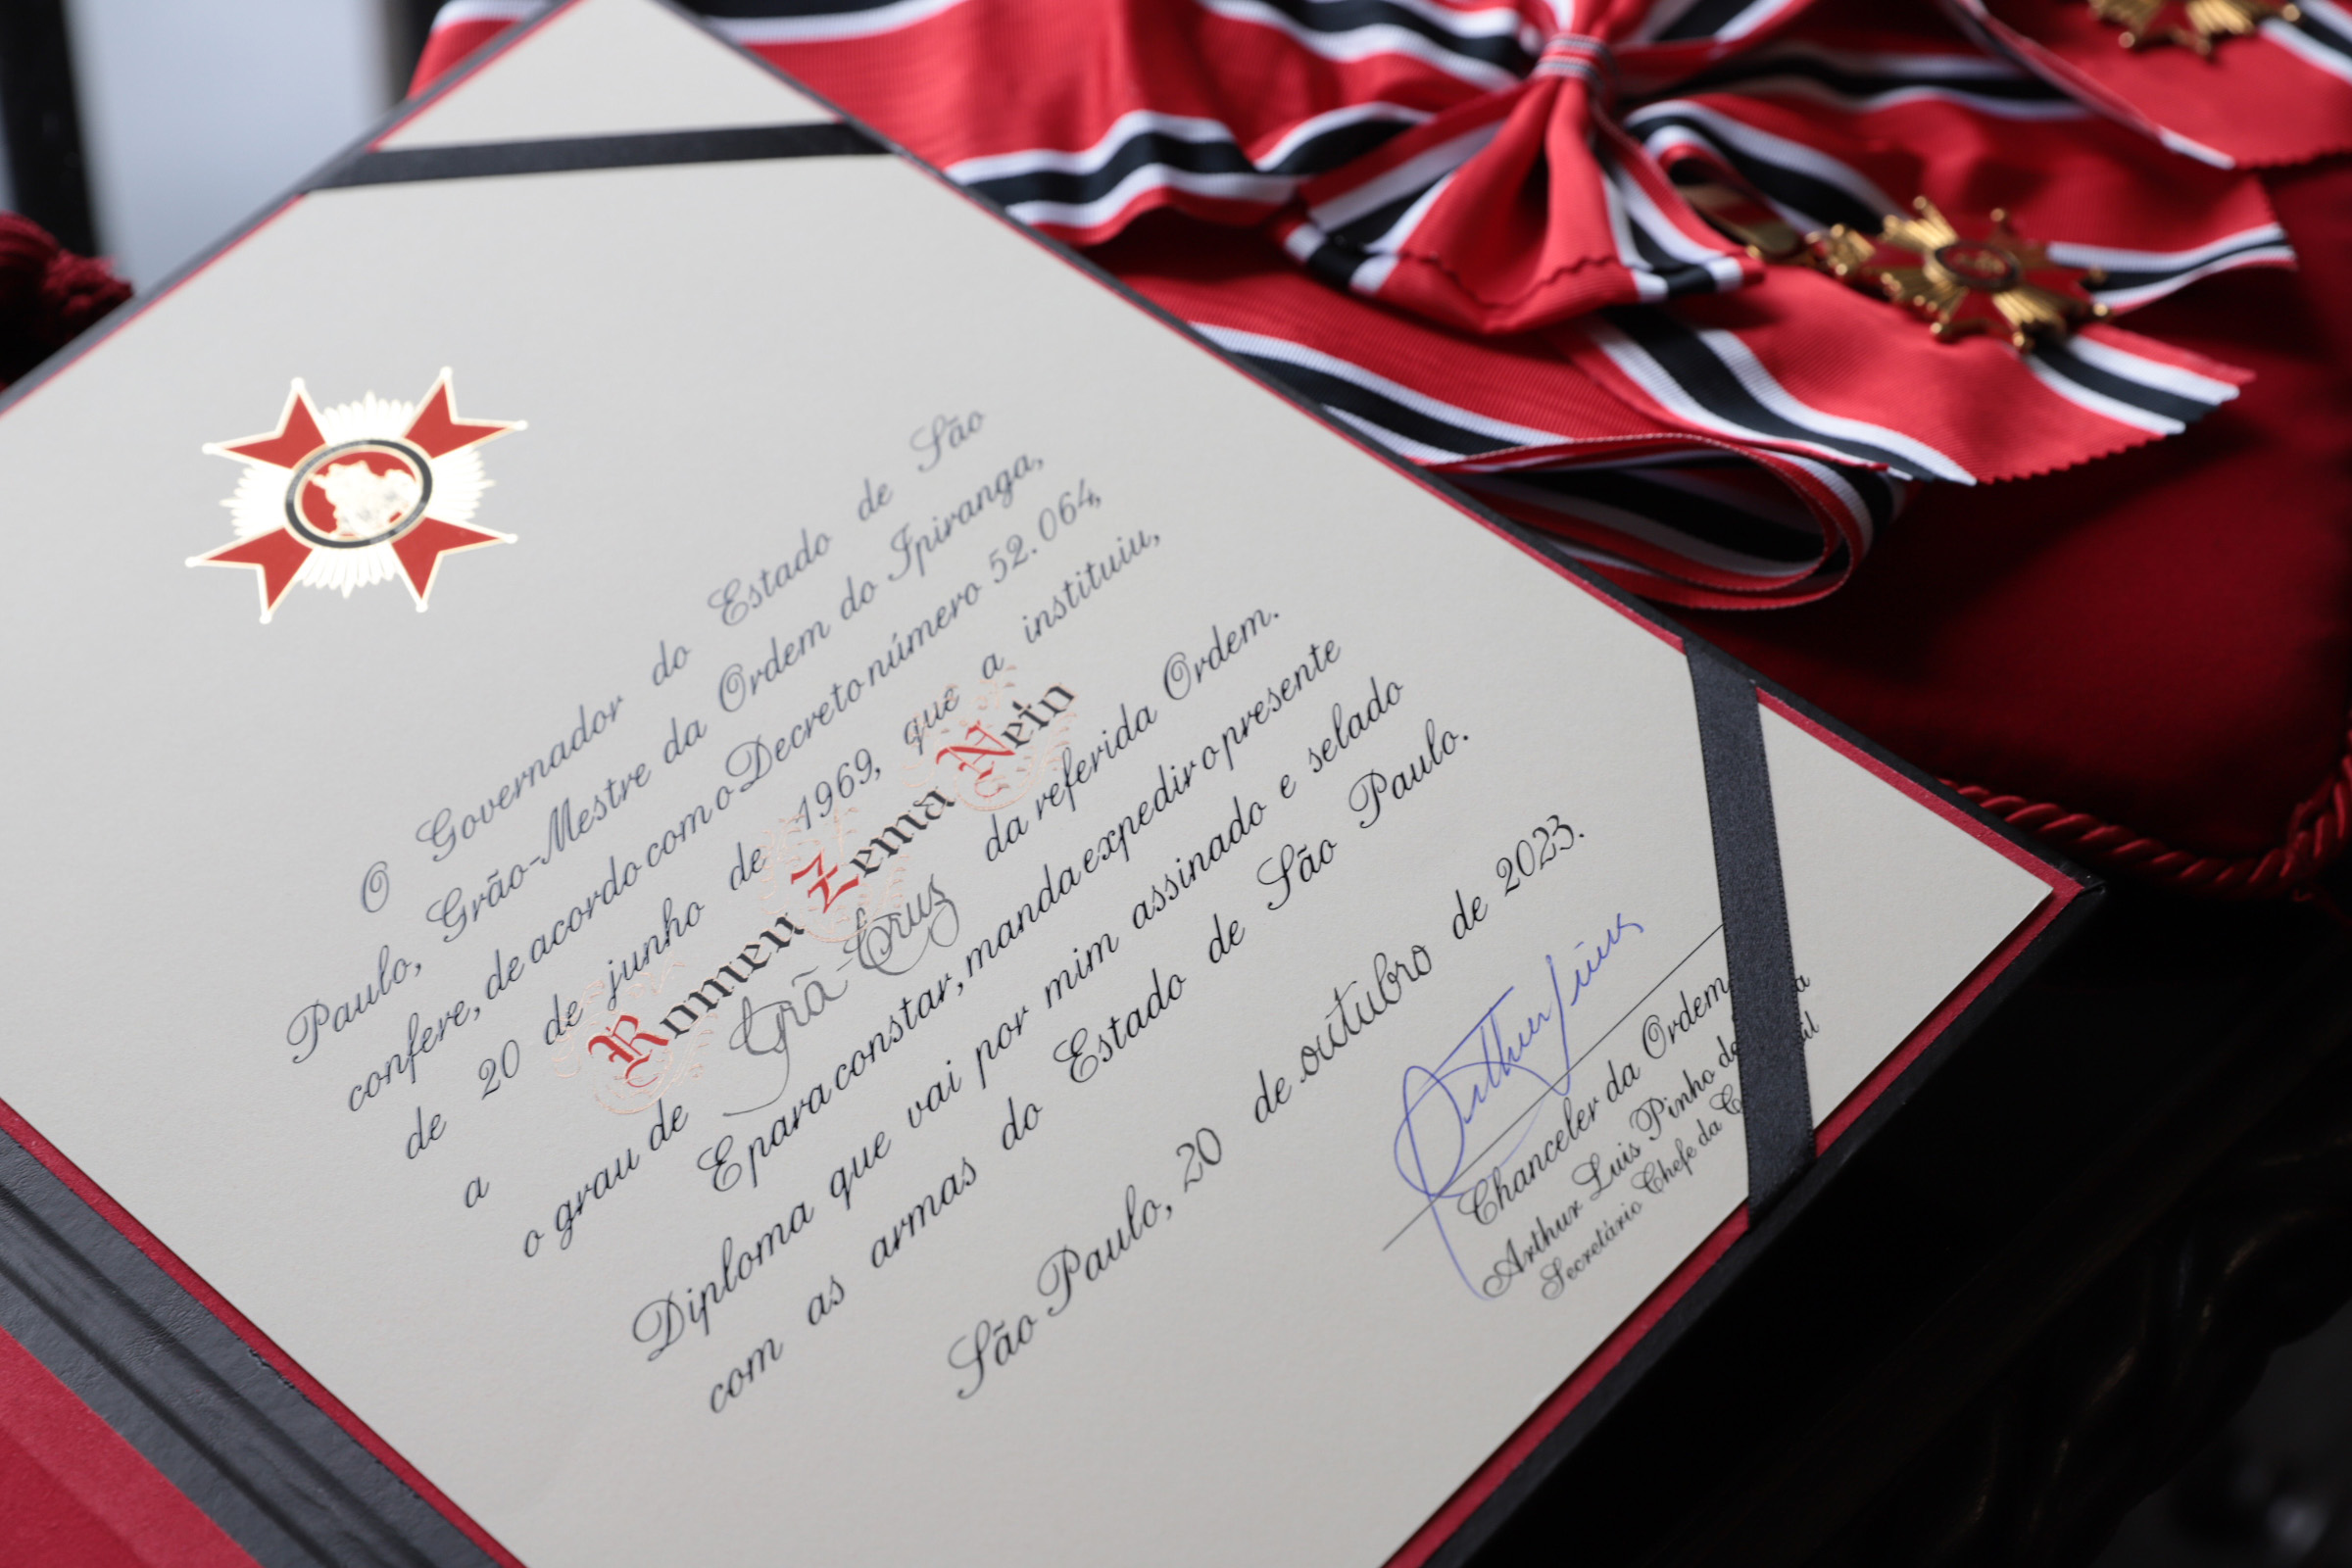 O Governador do Estado de São
Paulo, Grão-Mestre da Ordem do Ipiranga,
confere, de acordo com o Decreto número 52.064,
de 20 de junho de 1969, que a instituiu,
a Romeu Zema Neto
o grau de Grã-Cruz da referida Ordem.
E para constar, manda expedir o presente
Diploma que vai por mim assinado e selado
com as armas do Estado de São Paulo.
São Paulo, 20 de outubro de 2023.
Chanceler da Ordem
Arthur Luis Pinho de
Secretário Chefe da